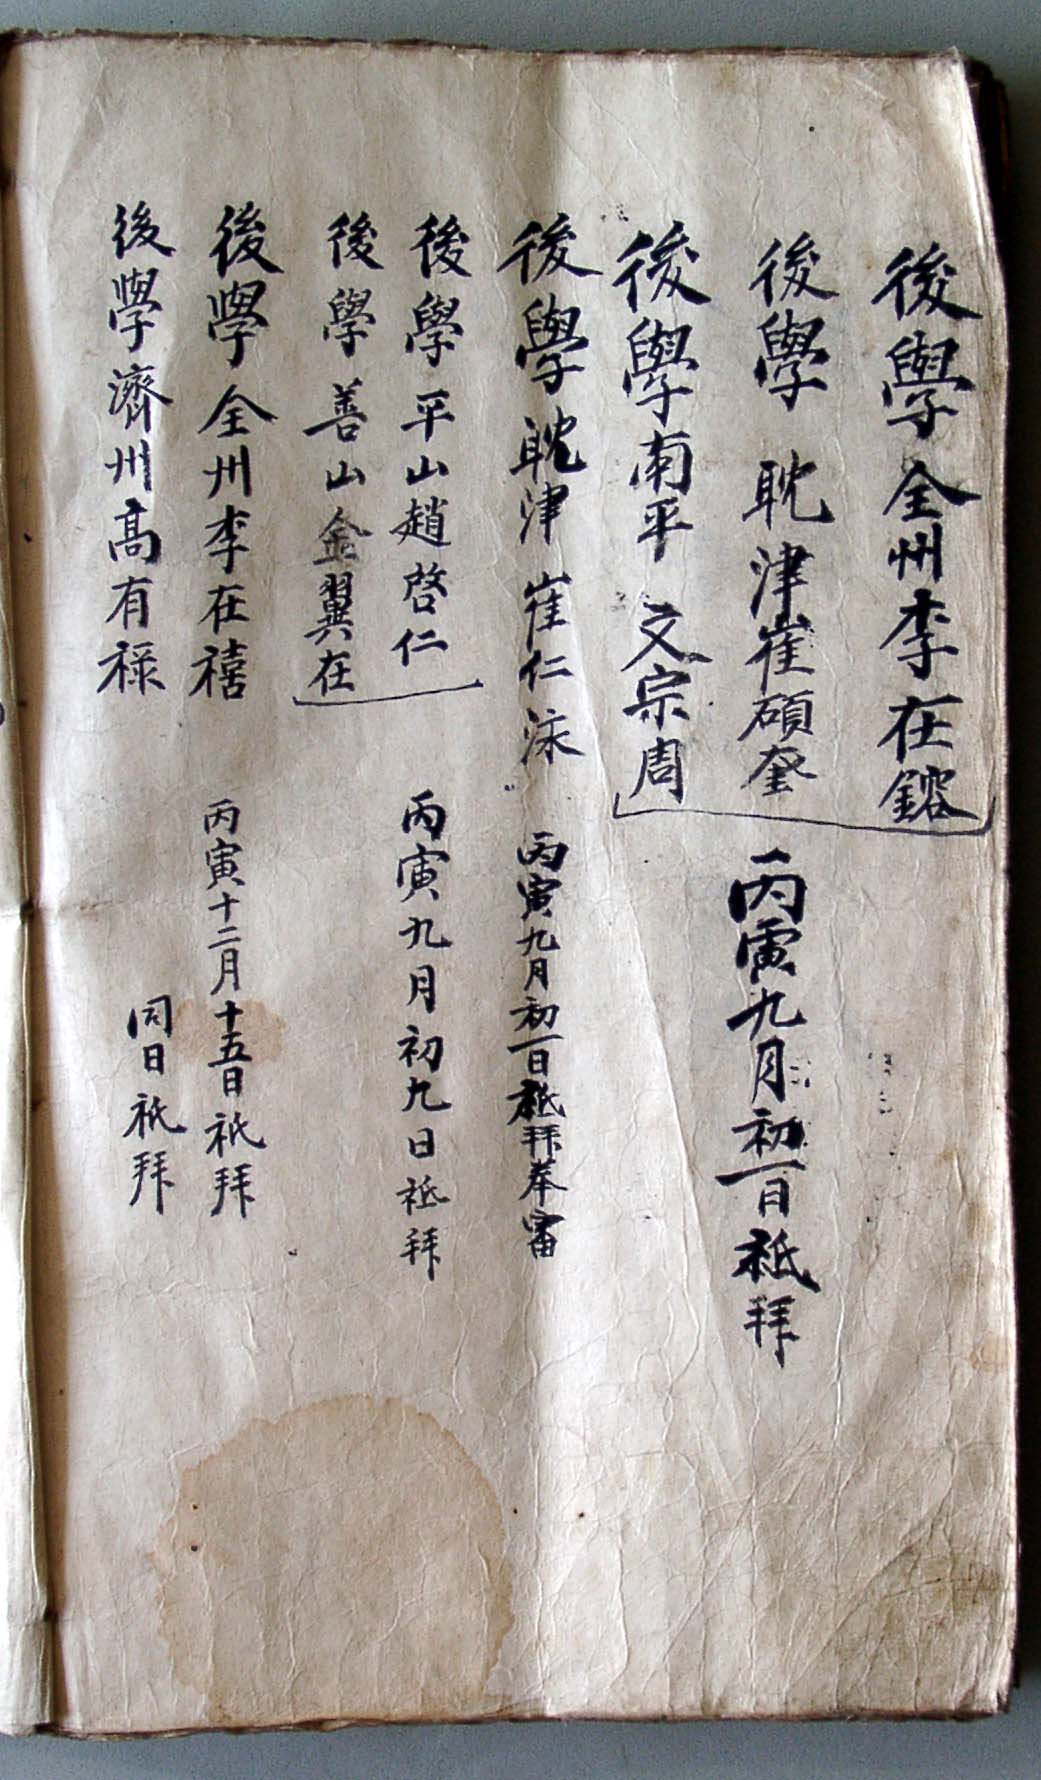 後學全州李在鎔
後學 耽津崔碩奎
後學南平 文宗周
丙寅九月初一日祗拜
後學耽津 崔仁泳 丙寅九月初一日祗拜奉審
後學平山趙啓仁
後學善山金翼在
丙寅九月初九日祗拜
後學全州李在禧 丙寅十二月十五日祗拜
後學濟州高有祿 同日祗拜